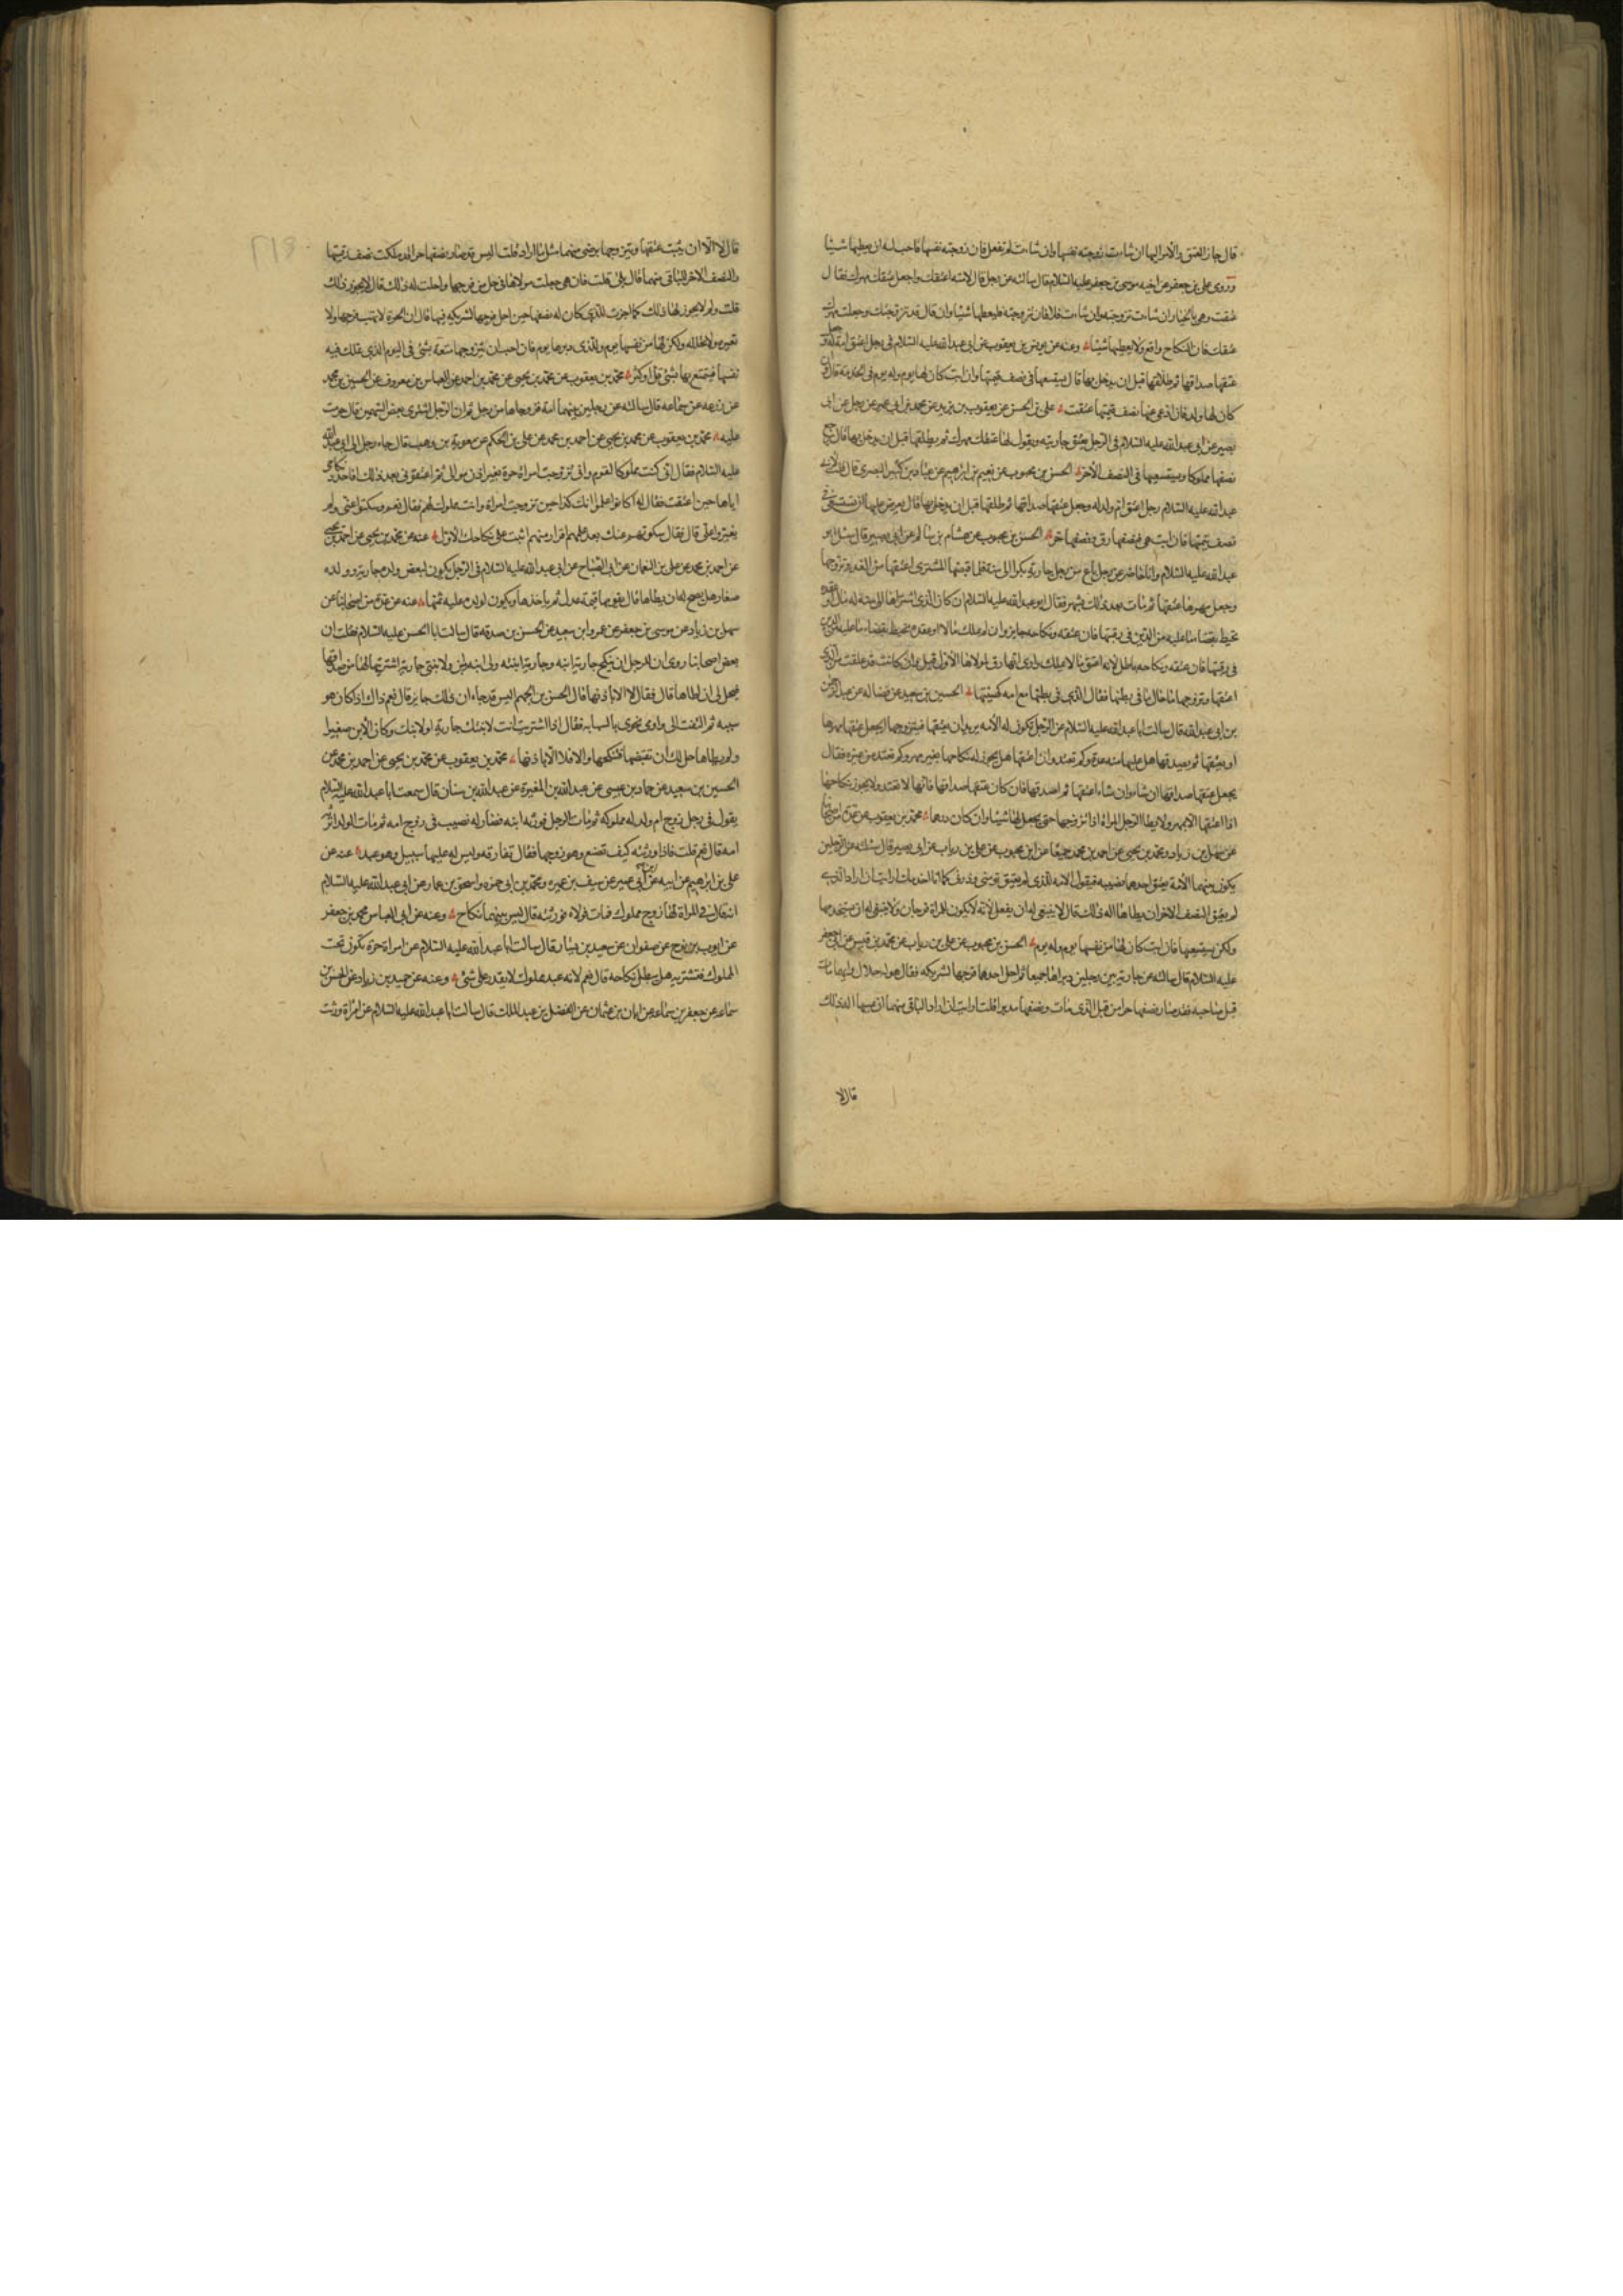 قال جاز العتق والأمر اليها ان شاءت زوجته نفسها وان شاءت لم تفعل فان زوجته نفسها فاحب له ان يعطيها شيئا
وروى علي بن جعفر عن اخيه موسى بن جعفر عليه السلام قال سالته عن رجل قال لامته اعتقك واجعل عتقك مهرك فقال
عتقت وهي بالخيار ان شاءت تزوجته وان شاءت فلا فان تزوجته فليعطها شيئا وان قال قد تزوجتك وجعلت مهرك
عتقك فان النكاح واقع ولا يعطيها شيئا وعنه عن يونس بن يعقوب عن ابي عبدالله عليه السلام في رجل اعتق امة له وجعل
عتقها صداقها ثم طلقها قبل ان يدخل بها قال يستسعيها في نصف قيمتها وان ابت كان لها يوم وله يوم في الخدمة قال وان
كان لها ولد فان ادى عنها نصف قيمتها عتقت علي بن الحسن عن يعقوب بن يزيد عن محمد بن ابي عمير عن رجل عن ابي
بصير عن ابي عبدالله عليه السلام في الرجل يعتق جاريته ويقول لها عتقك مهرك ثم يطلقها قبل ان يدخل بها قال يرجع
نصفها مملوكا ويستسعيها في النصف الآخر الحسن بن محبوب عن نعيم بن ابرهيم عن عباد بن كثير البصري قال قلت لابي
عبدالله عليه السلام رجل اعتق ام ولد له وجعل عتقها صداقها ثم طلقها قبل ان يدخل بها قال يعرض عليها ان تستسعى في
نصف قيمتها فان ابت هي فنصفها رق ونصفها حر الحسن بن محبوب عن هشام بن سالم عن ابي بصير قال سئل ابو
عبدالله عليه السلام وانا حاضر عن رجل باع من رجل جارية بكرا الى سنة فلما قبضها المشتري اعتقها من الغد وتزوجها
وجعل مهرها عتقها ثم مات بعد ذلك بشهر فقال ابو عبدالله عليه السلام ان كان الذي اشتراها الى سنة له مال او عقدة
تحيط بقضاء ما عليه من الدين في رقبتها فان عتقه ونكاحه جايز وان لم يملك مالا او عقدة تحيط بقضاء ما عليه من الدين
في رقبتها فان عتقه ونكاحه باطل لانه اعتق ما لا يملك وارى انها رق لمولاها الأول قيل وان كانت قد علقت من الذي
اعتقها وتزوجها ما حال ما في بطنها فقال الذي في بطنها مع امه كهيئتها الحسين بن سعيد عن فضالة عن عبد الرحمن
بن ابي عبدالله قال سالت ابا عبدالله عليه السلام عن الرجل تكون له الأمة يريد ان يعتقها فيتزوجها ايجعل عتقها مهرها
او يعتقها ثم يصدقها وهل عليها منه عدة وكم تعتد وان اعتقها هل يجوز له نكاحها بغير مهر وكم تعتد من غيره فقال
يجعل عتقها صداقها ان شاء وان شاء اعتقها ثم اصدقها فان كان عتقها صداقها فانها لا تعتد ولا يجوز نكاحها
اذا اعتقها الا بمهر ولا يطا الرجل المراة اذا تزوجها حتى يجعل لها شيئا وان كان درهما محمد بن يعقوب عن عدة من اصحابنا
عن سهل بن زياد ومحمد بن يحيى عن احمد بن محمد جميعا عن ابن محبوب عن علي بن رياب عن ابي بصير قال سئلته عن الرجلين
يكون بينهما الأمة يعتق احدهما نصيبه فتقول الأمة للذي لم يعتق
لم يعتق النصف الآخر ان يطاها اله ذلك قال لا ينبغي له ان يفعل لأنه لا يكون للمراة فرجان ولا ينبغي له ان يستخدمها
ولكن يستسعيها فان ابت كان لها من نفسها يوم وله يوم الحسن بن محبوب عن علي بن رياب عن محمد بن قيس عن ابي جعفر
عليه السلام قال سالته عن جارية بين رجلين دبراها جميعا ثم احل احدهما فرجها لشريكه فقال هو له حلال وايهما مات
قبل صاحبه فقد صار نصفها حرا من قبل الذي مات ونصفها مدبرا قلت ارايت ان اراد الباقي منهما ان يمسها اله ذلك
قال لا
قال لا الا ان يثبت عتقها ويتزوجها برضى منها مثل ما اراد قلت اليس قد صار نصفها حرا قد ملكت نصف رقبتها
والنصف الآخر للباقي منهما قال بلى قلت فان هي جعلت مولاها في حل من فرجها واحلت له ذلك قال لا يجوز ذلك
قلت ولم لا يجوز لها ذلك كما اجزت للذي كان له نصفها حين احل فرجها لشريكه فيها قال ان الحرة لا تهب فرجها ولا
تعيره ولا تحلله ولكن لها من نفسها يوم وللذي دبرها يوم فان احب ان يتزوجها متعة بشئ في اليوم الذي تملك فيه
نفسها فيتمتع بها بشئ قل او كثر محمد بن يعقوب عن محمد بن يحيى عن محمد بن احمد عن العباس بن معروف عن الحسين بن محمد
عن زرعة عن سماعة قال سالته عن رجلين بينهما امة فزوجاها من رجل ثم ان الرجل اشترى بعض السهمين قال حرمت
عليه محمد بن يعقوب عن محمد بن يحيى عن احمد بن محمد عن علي بن الحكم عن معوية بن وهب قال جاء رجل الى ابي عبدالله
عليه السلام فقال اني كنت مملوكا لقوم واني تزوجت امراة حرة بغير اذن موالي ثم اعتقوني بعد ذلك افاجدد نكاحي
اياها حين اعتقت فقال له اكانوا علموا انك حين تزوجت امراة وانت مملوك لهم فقال نعم وسكتوا عني ولم
يغيروا علي قال فقال سكوتهم عنك بعد علمهم اقرار منهم اثبت على نكاحك الاول عنه عن محمد بن يحيى
عن احمد بن محمد عن علي بن النعمان عن ابي الصباح عن ابي عبدالله عليه السلام في الرجل يكون لبعض ولده جارية وولده
صغار هل يصلح له ان يطاها قال يقومها قيمة عدل ثم ياخذها ويكون لولده عليه ثمنها عنه عن عدة من اصحابنا عن
سهل بن زياد عن موسى بن جعفر عن عمرو ابن سعيد عن الحسن بن صدقة قال سالت ابا الحسن عليه السلام فقلت ان
بعض اصحابنا روى ان للرجل ان ينكح جارية ابنه وجارية ابنته ولي ابنة وابن ولابنتي جارية اشتريتها لها من صداقها
فيحل لي ان اطاها قال فقال لا الا باذنها قال الحسن بن الجهم اليس قد جاء ان ذلك جايز قال نعم ذاك اذا كان هو
سببه ثم التفت الي واومى نحوي بالسبابة فقال اذا اشتريت انت لابنتك جارية او لابنك وكان الابن صغيرا
ولم يطاها حل لك ان تقبضها فتنكحها والا فلا الا باذنها محمد بن يعقوب عن محمد بن يحيى عن احمد بن محمد عن
الحسين بن سعيد عن حماد بن عيسى عن عبدالله بن المغيرة عن عبدالله بن سنان قال سمعت ابا عبدالله عليه السلام
يقول في رجل زوج ام ولد له مملوكه ثم مات الرجل فورثه ابنه فصار له نصيب في زوج امه ثم مات الولد اترثه
امه قال نعم قلت فاذا ورثته كيف تصنع وهو زوجها فقال تفارقه وليس له عليها سبيل وهو عبد عنه عن
علي بن ابرهيم عن ابيه عن ابن ابي عمير عن سيف بن عميرة ومحمد بن ابي حمزة واسحق بن عمار عن ابي عبدالله عليه السلام
انه قال في المراة لها زوج مملوك فمات مولاه فورثته قال ليس بينهما نكاح وعنه عن ابي العباس محمد بن جعفر
عن ايوب بن نوح عن صفوان عن سعيد بن يسار قال سالت ابا عبدالله عليه السلام عن امراة حرة تكون تحت
المملوك فتشتريه هل يبطل نكاحه قال نعم لانه عبد مملوك لا يقدر على شئ وعنه عن حميد بن زياد عن الحسن بن
سماعة عن جعفر بن سماعة عن ابان بن عثمان عن الفضل بن عبد الملك قال سالت ابا عبدالله عليه السلام عن امراة ورثت